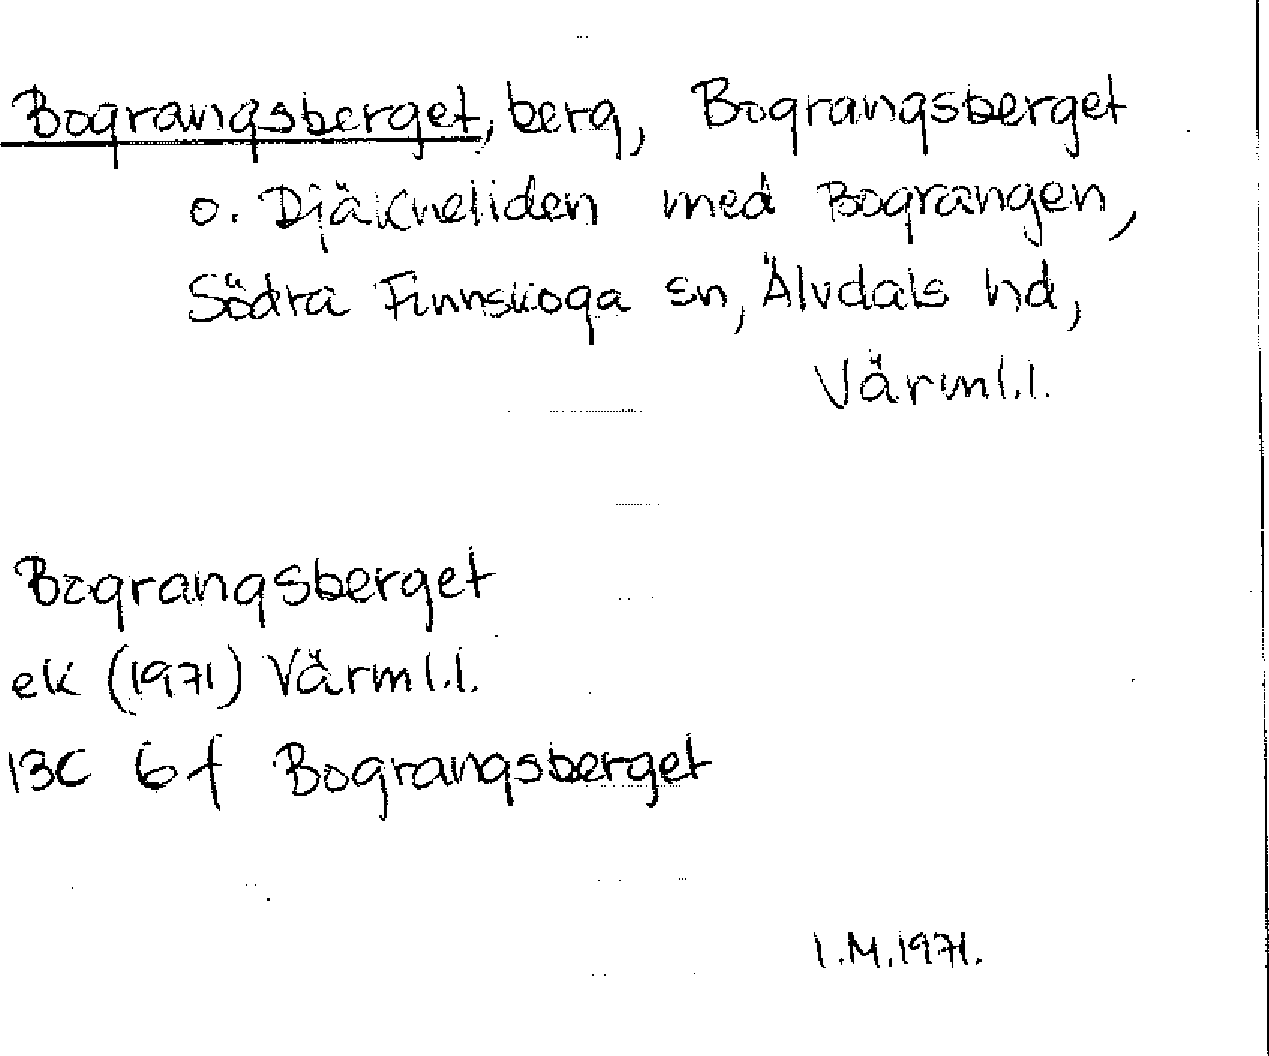 Bograngsberget, berg, Bograngsberget
o. Djäkneliden med Bograngen,
Södra Finnskoga sn, Älvdals hd,
Värml.l.
Bograngsberget
ek (1971) Värml.l.
13C 6f Bograngsberget
I.M.1971.